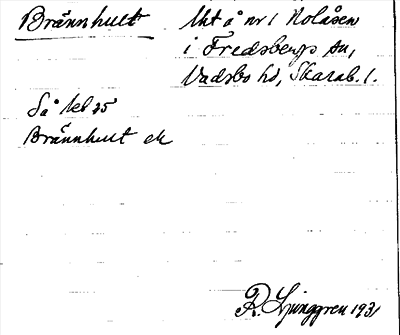 Brännhult
lht å nr 1 Nolåsen
i Fredsbergs sn,
Vadsbo hd, Skarab. l.
Så keb 25
Brännhult ek
R. Ljunggren 1931